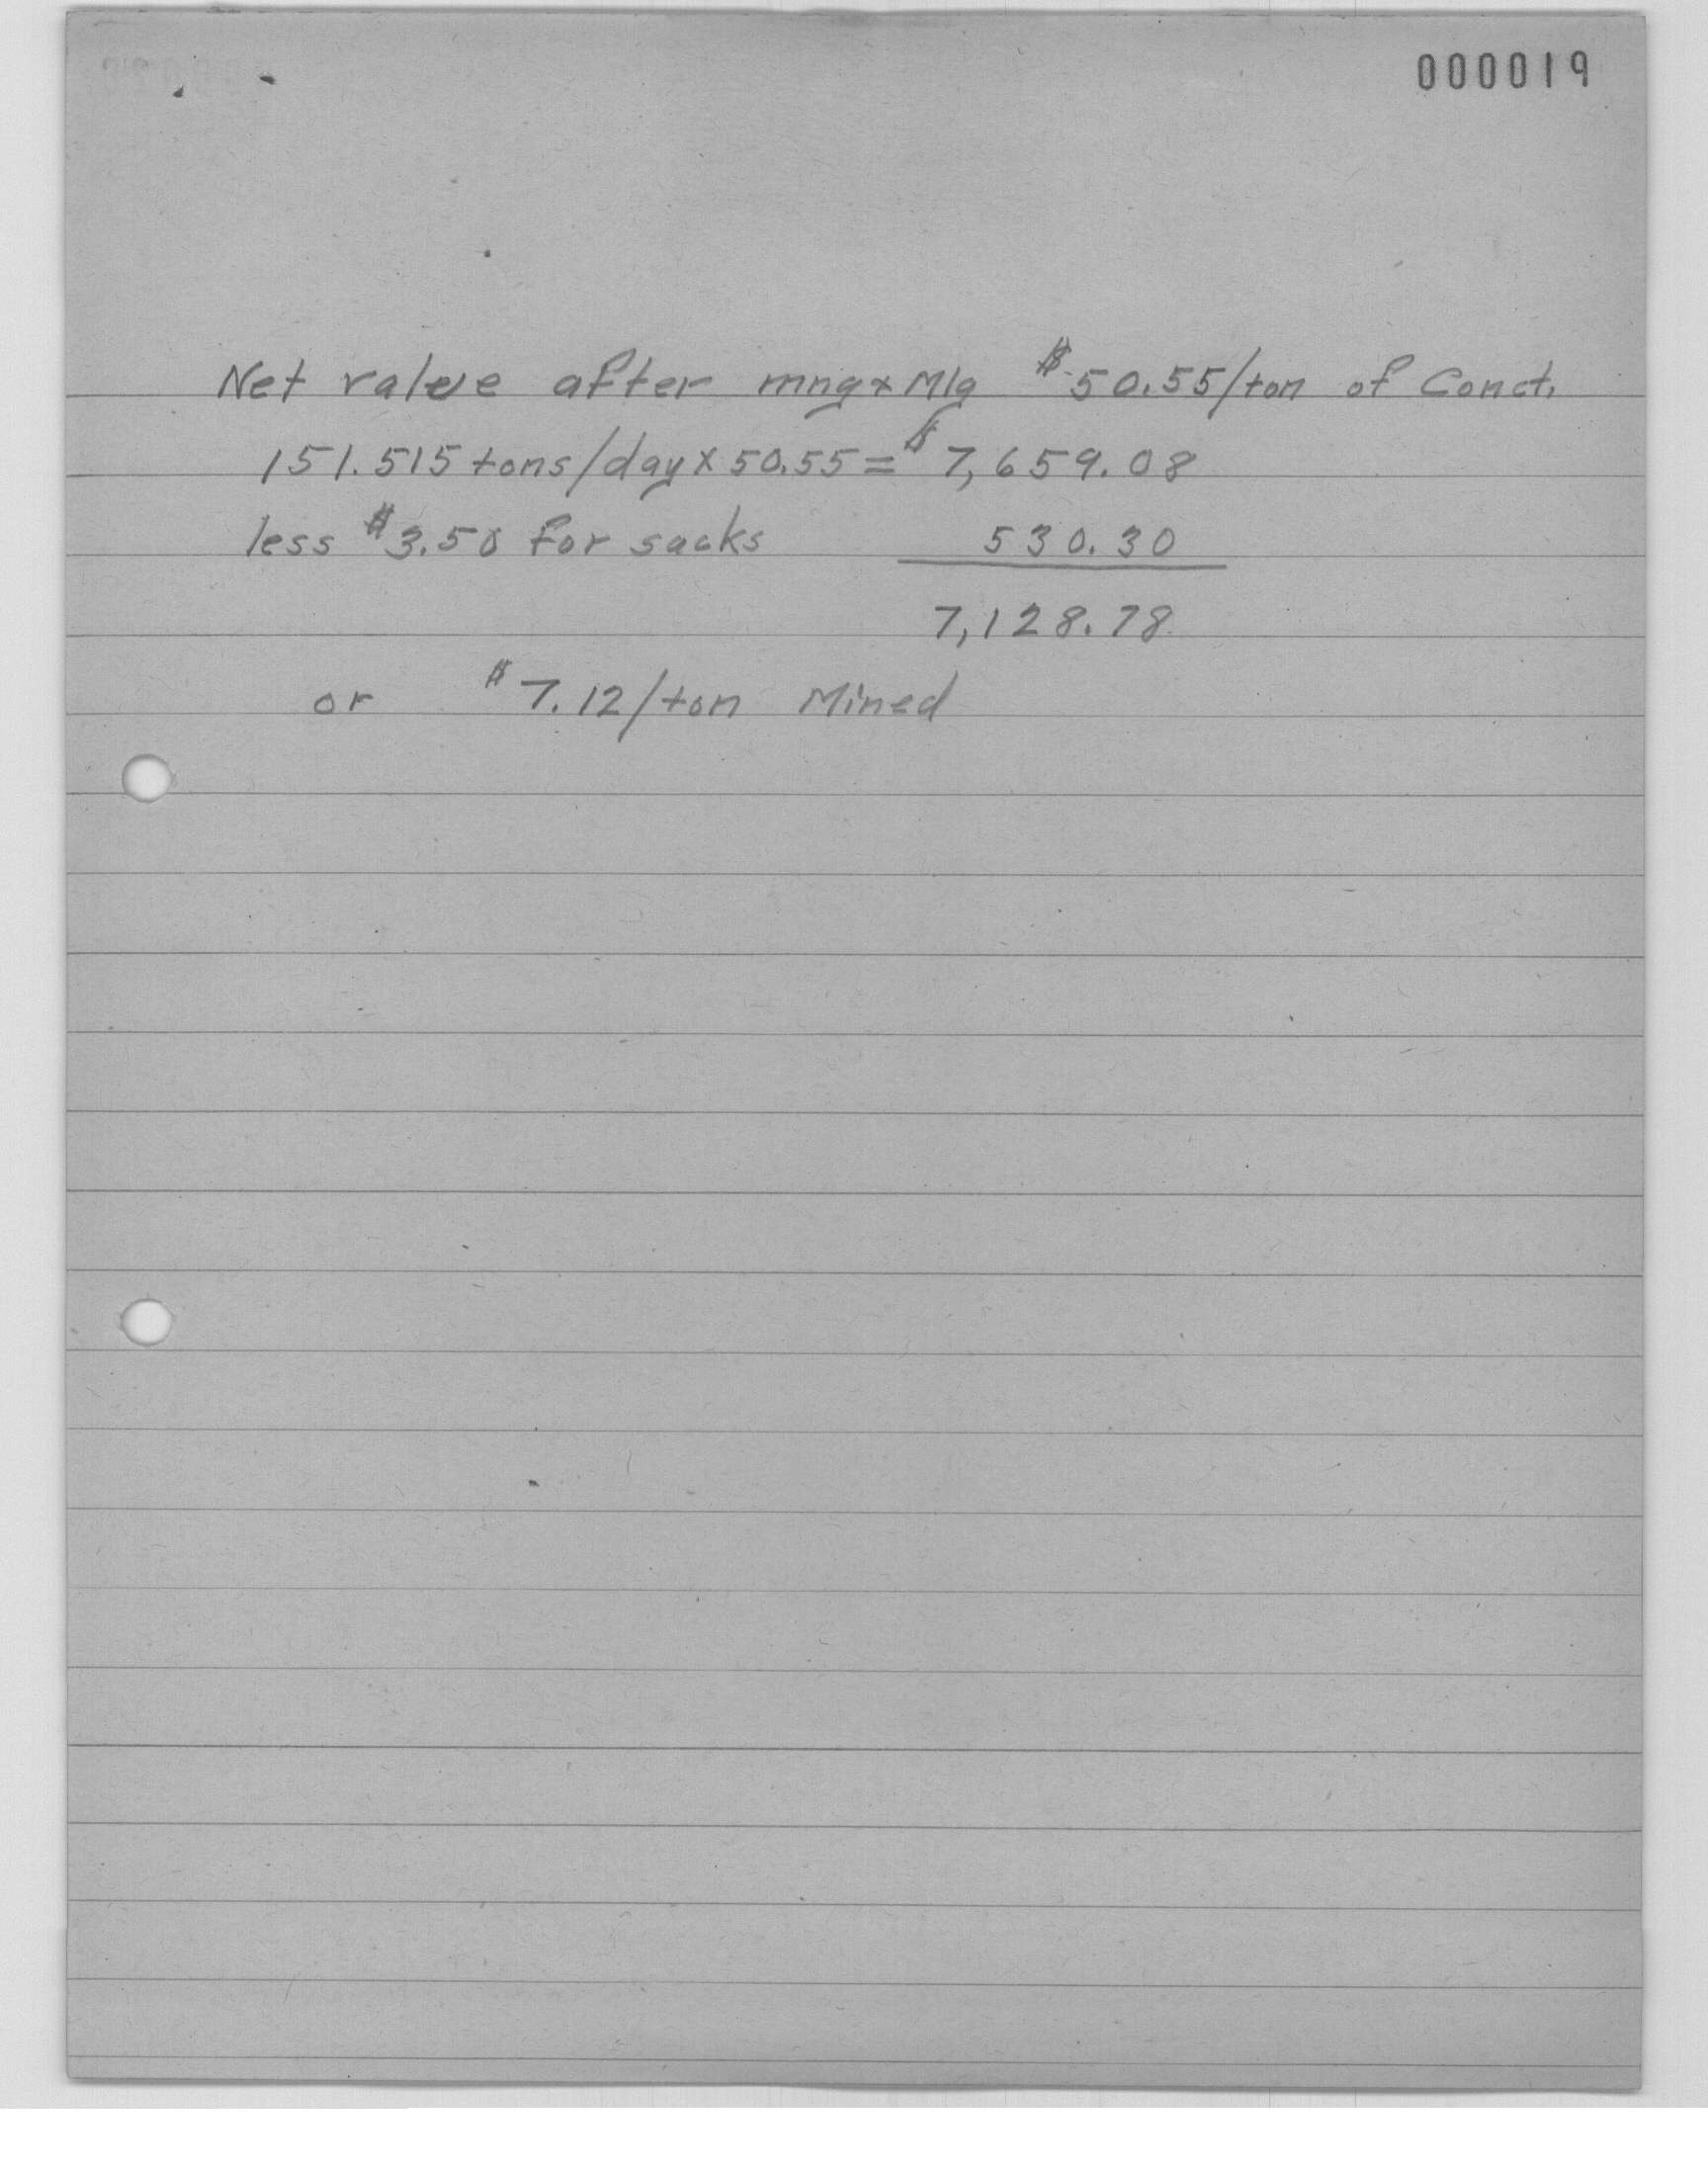 000019
Net value after mng + Mlg $50.55/ton of Conct.
151.515 tons/day x 50.55 = $7,659.08
less $3.50 for sacks 530.30
7,128.78
or $7.12/ton Mined